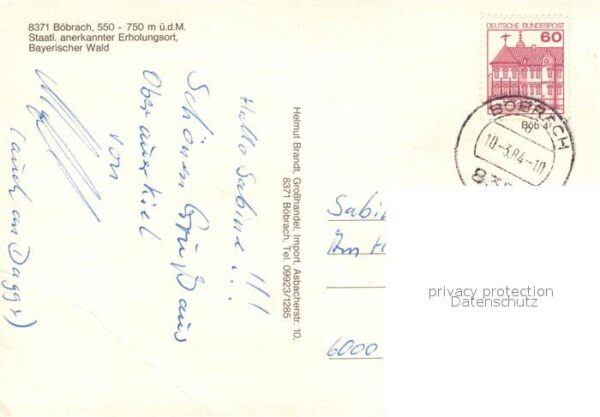 8371 Böbrach, 550 - 750 m ü.d.M.
Staatl. anerkannter Erholungsort,
Bayerischer Wald
DEUTSCHE BUNDESPOST
60
BÖBRACH
Böb 4
10-3.84-10
Hallo Sabine!!!
Schönen Gruß aus
Oberauerkiel
von
(auch an Dagg
Helmut Brandt, Großhandel, Import, Asbacherstr. 10,
8371 Böbrach, Tel. 09923/1285
Sabi
Am
6000
privacy protection
Datenschutz